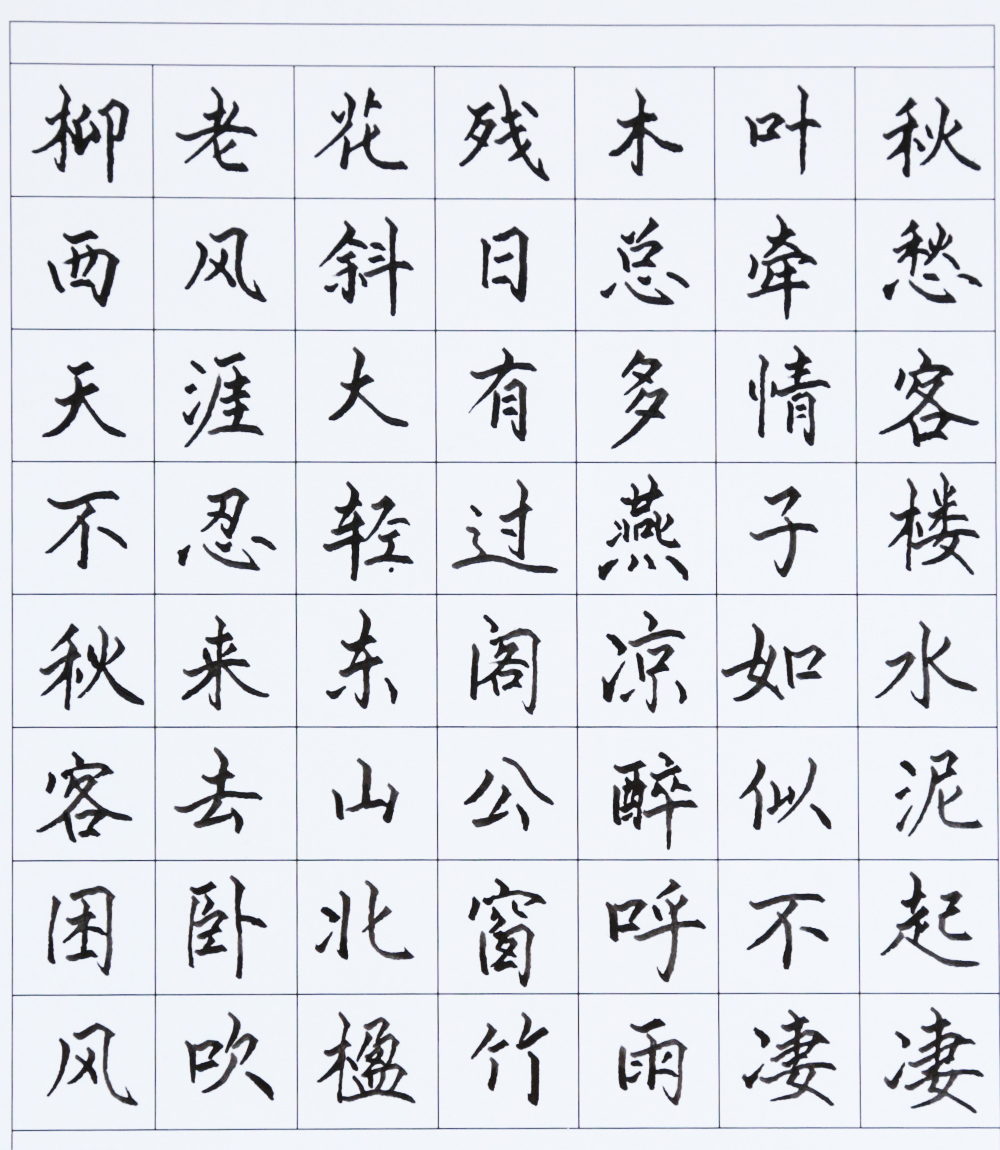 柳老花残木叶秋
西风斜日总牵愁
天涯大有多情客
不忍轻过燕子楼
秋来东阁凉如水
客去山公醉似泥
困卧北窗呼不起
风吹楹竹雨凄凄